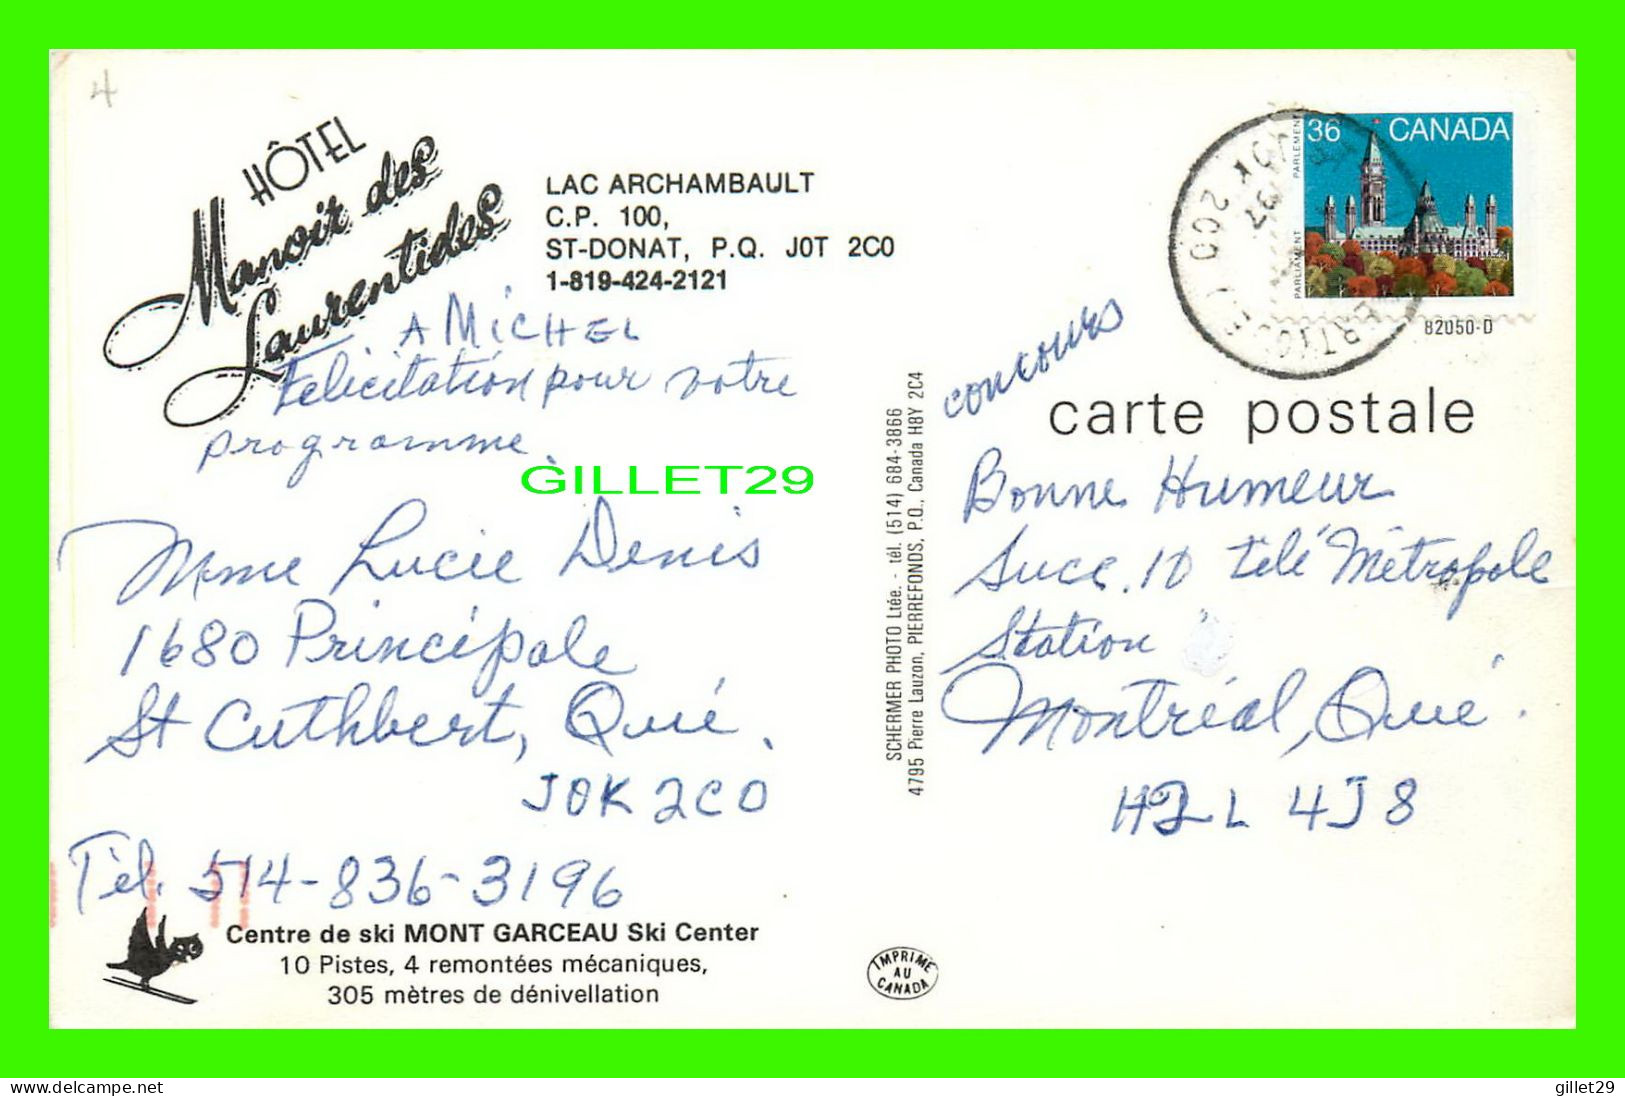 4
HÔTEL
Manoir des
Laurentides
LAC ARCHAMBAULT
C.P. 100,
ST-DONAT, P.Q. J0T 2C0
1-819-424-2121
A MiCHEL
Felicitation pour votre
programme.
GILLET29
Mme Lucie Denis
1680 Principale
St Cuthbert, Qué.
J0K 2C0
Tèl. 514-836-3196
Centre de ski MONT GARCEAU Ski Center
10 Pistes, 4 remontées mécaniques,
305 mètres de dénivellation
SCHERMER PHOTO Ltée. - tél. (514) 684-3866
4795 Pierre Lauzon, PIERREFONDS, P.Q., Canada H8Y 2C4
IMPRIMÉ
AU
CANADA
36 CANADA
PARLIAMENT PARLEMENT
82050-D
2C0
concours
carte postale
Bonne Humeur
Succ. 10 télé Métropole
Station
Montréal, Qué.
H2L 4J8
Delcampe.net
gillet29